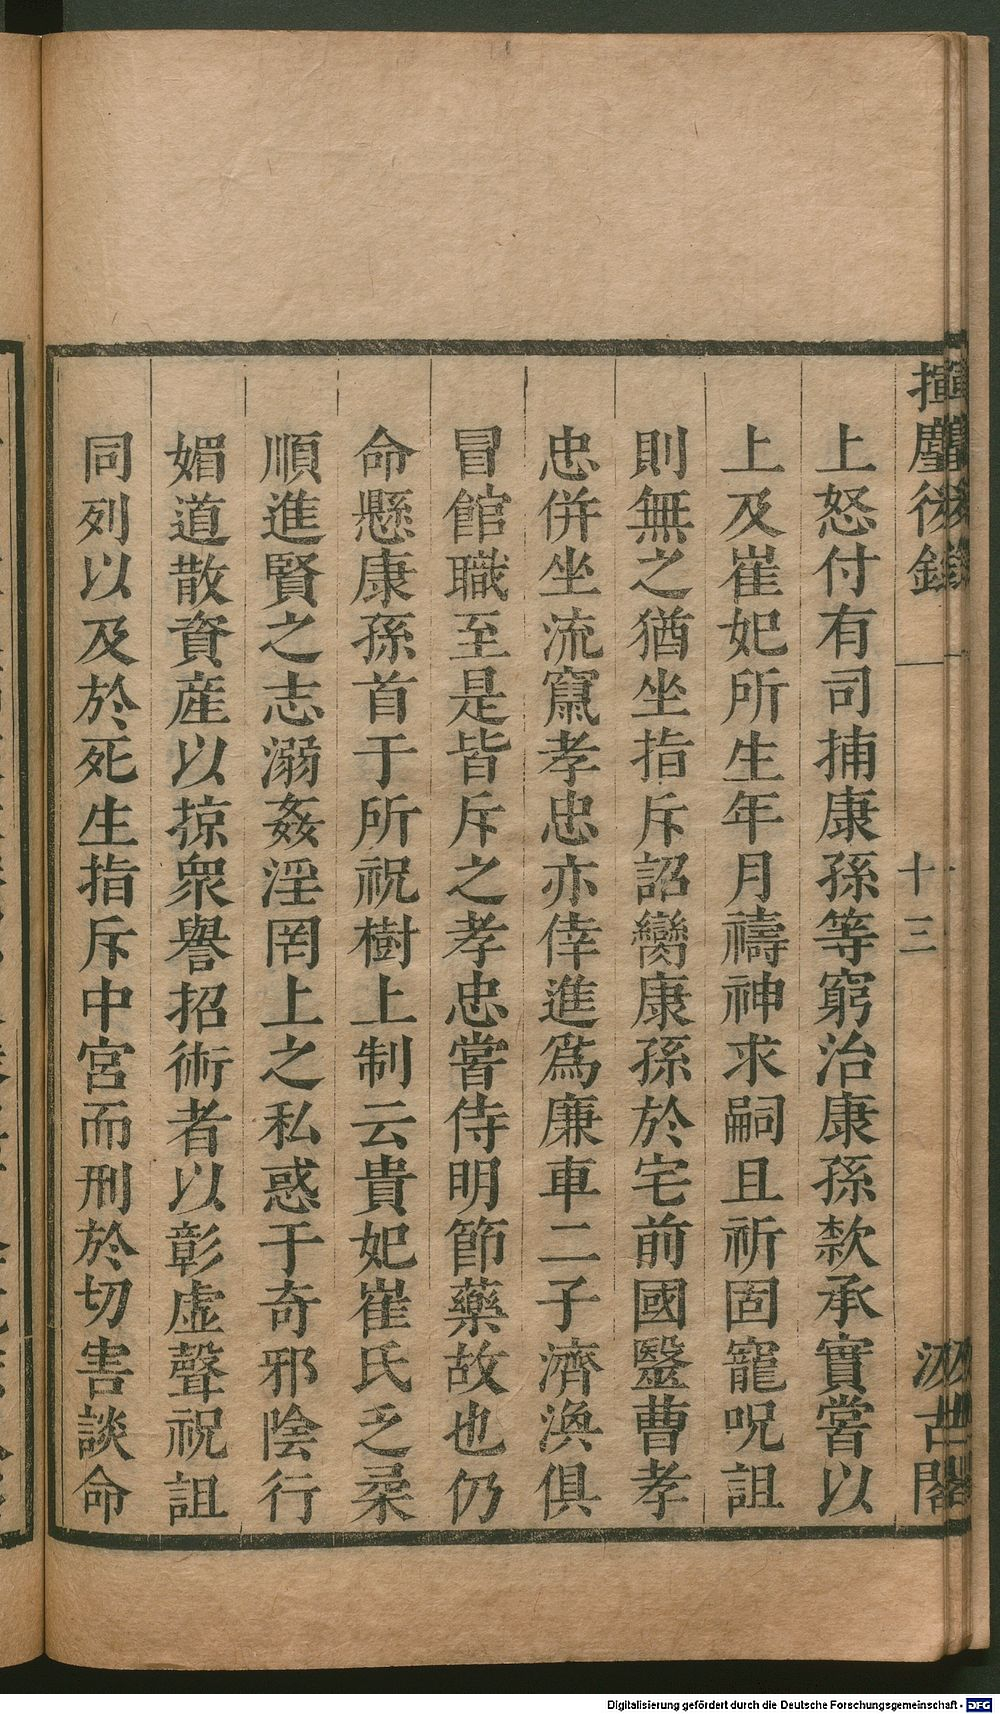 揮麈後錄
十三
汲古閣
上怒付有司捕康孫等窮治康孫欵承實嘗以
上及崔妃所生年月禱神求嗣且祈固寵呪詛
則無之猶坐指斥詔臠康孫於宅前國毉曹孝
忠併坐流竄孝忠亦倖進爲廉車二子濟渙俱
冒館職至是皆斥之孝忠嘗侍明節藥故也仍
命懸康孫首于所祝樹上制云貴妃崔氏乏柔
順進賢之志溺姦淫罔上之私惑于奇邪陰行
媚道散資産以掠衆譽招術者以彰虛聲祝詛
同列以及於死生指斥中宮而刑於切害談命
Digitalisierung gefördert durch die Deutsche Forschungsgemeinschaft - DFG